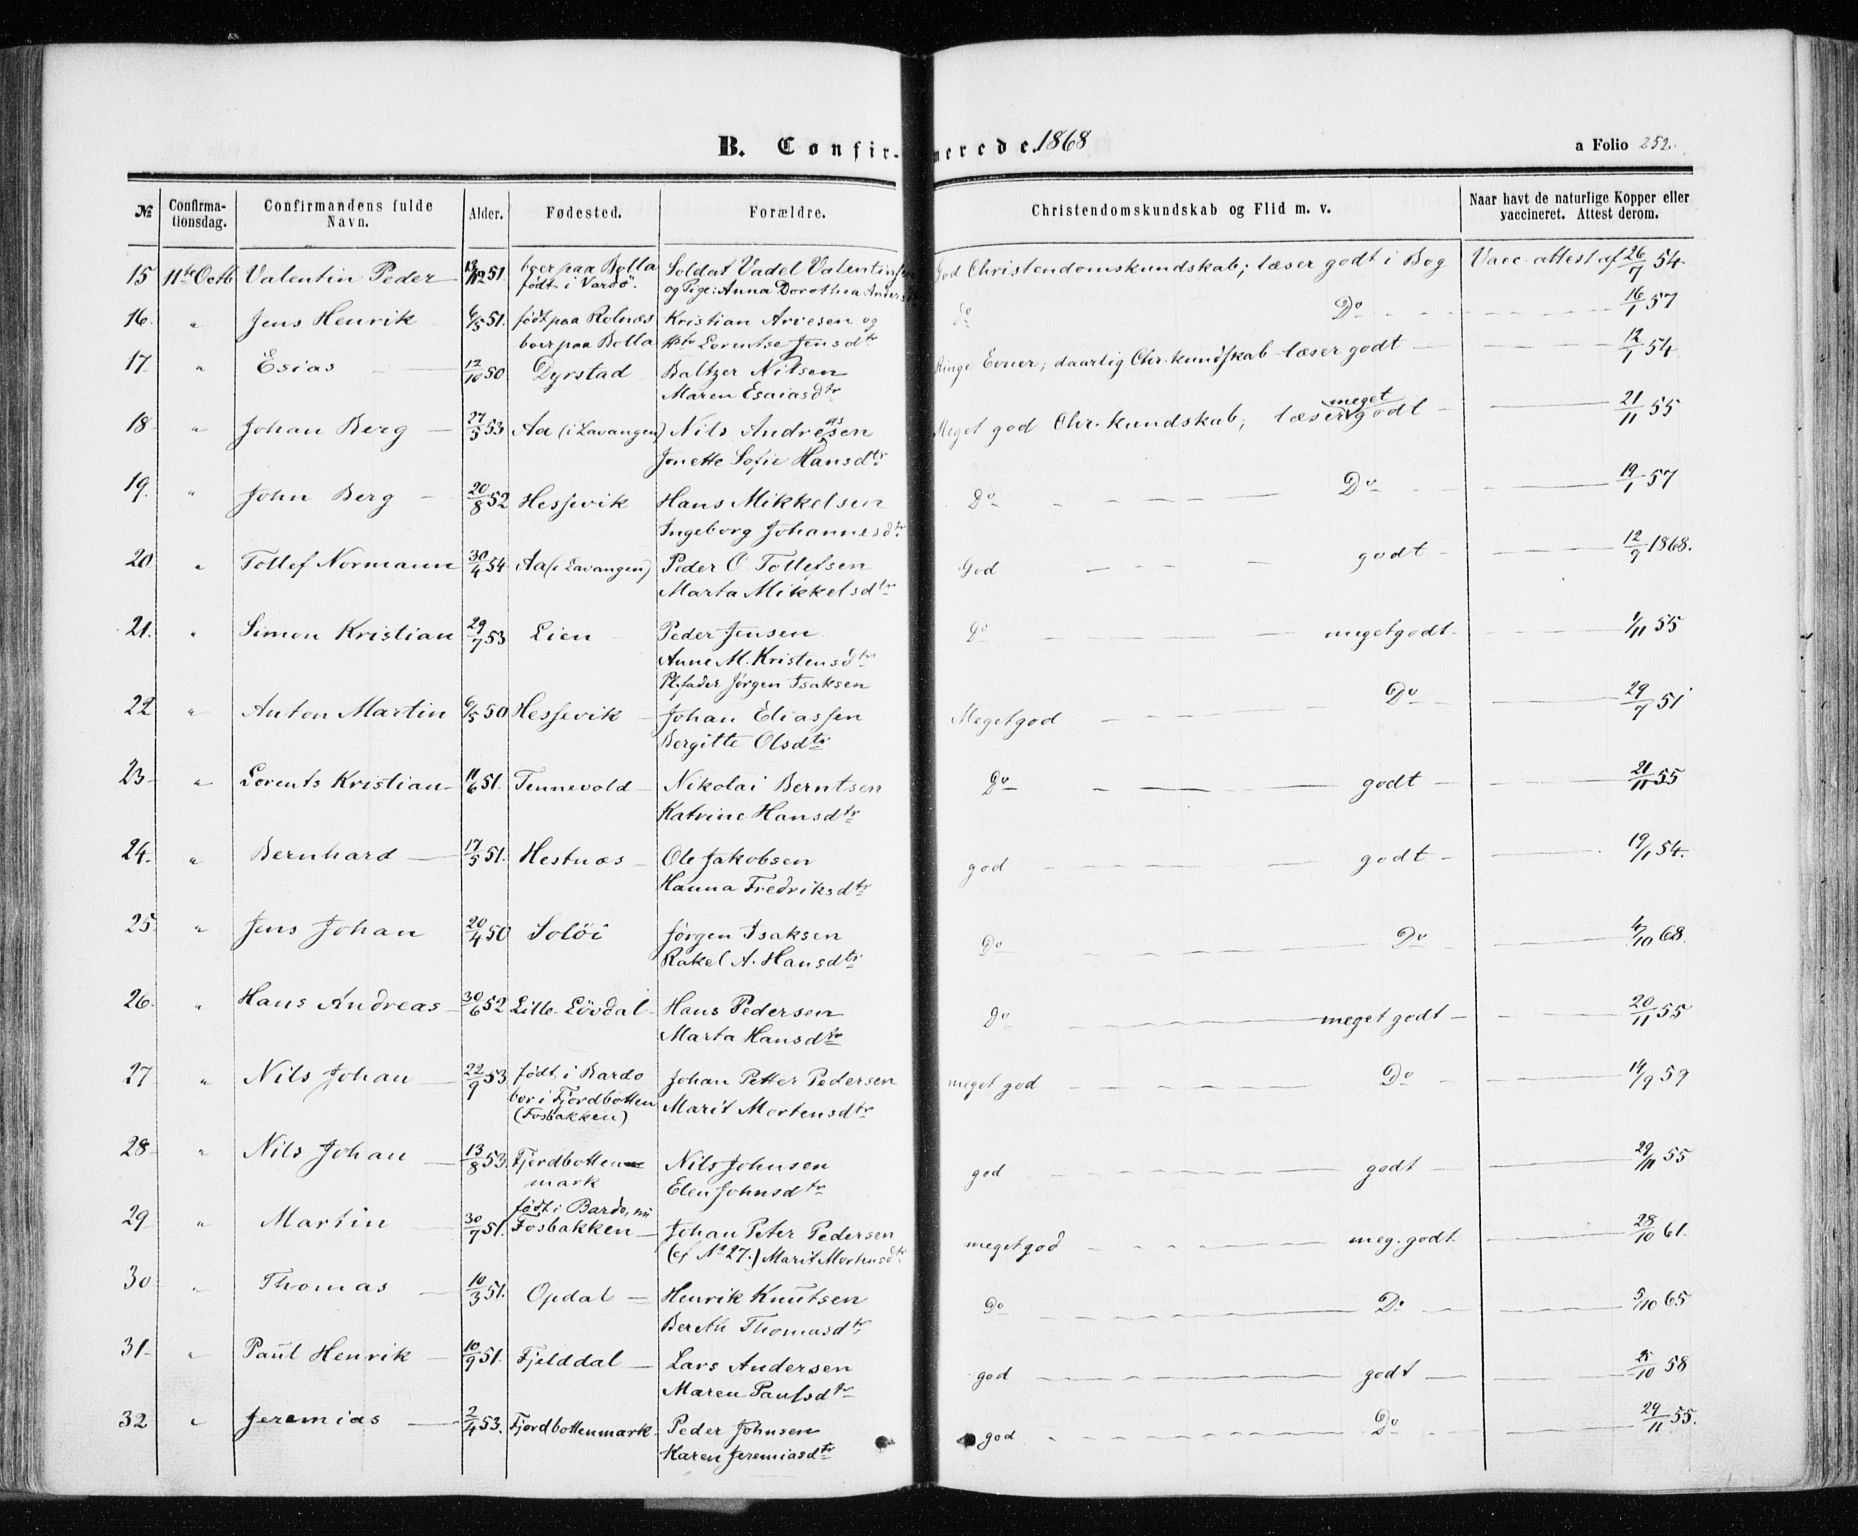 B. Confirmerede. 1868
a Folio 252.
№ Confirmationsdag. Confirmandens fulde Navn. Alder. Fødested. Forældre. Christendomskundskab og Flid m. v. Naar havt de naturlige Kopper eller vaccineret. Attest derom.
15 11te Octb Valentin Peder 51. boer paa Bolla Soldat Vadel Valentinsen God Christendomskundskab; læser godt i Bog Vacc. attest af 26/7 54.
født i Vardö. og Pige: Anna Dorothea
16. " Jens Henrik 6/5 51. født paa Rolnæs Kristian Ariesen og Do Do 16/7 57
boer paa Bolla Lorentse Jensdtr
17. " Esias 12/10 50 Dyrstad Baltzer Nilsen Ringe Evner; daarlig Chr. kundskab læser godt 12/1 54
Maren Esaiasdtr
18. " Johan Berg 27/5 53 Aa (i Lavangen) Nils Andresen Meget god Chr. kundskab; læser meget godt 21/11 55
Jonette Sofie Hansdtr
19. " John Berg 20/8 52 Hessevik Hans Mikkelsen Do Do 19/1 57
Ingeborg Johannesdtr
20 " Tollef Normann 30/4 54 Aa (i Lavangen) Peder O. Tollefsen God godt 12/9 1868.
Marta Mikkelsdtr
21. " Simon Kristian 29/7 53 Lien Peder Jensen Do meget godt 1/11 55
Anne M. Kristensdtr
Plfader Jørgen Isaksen
22 " Anton Martin 6/5 50 Hessevik Johan Eliassen Meget god Do 29/7 51
Bergitte Olsdtr
23 " Lorents Kristian 11/6 51. Tennevold Nikolai Berntsen Do godt 21/11 55
Katrine Hansdtr
24. " Bernhard 17/5 51. Hestnæs Ole Jakobsen god godt 19/1 54.
Hanna Fredriksdtr
25 " Jens Johan 20/4 50 Solöi Jørgen Isaksen Do Do 4/10 68.
Rakel A. Hansdtr
26 " Hans Andreas 30/6 52 Lille Lövdal Hans Pedersen Do meget godt 20/11 55
Marta Hansdtr
27 " Nils Johan 22/9 53 født i Bardo Johan Petter Pedersen meget god Do 14/9 59
bor i Fjordbotten Marit Mortensdtr
(Fosbakken)
28 " Nils Johan 13/8 53. Fjordbotten Nils Johnsen god godt 29/11 55
mark Elen Johnsdtr
29 " Martin 30/7 51. født i Bardo, nu Johan Peter Pedersen meget god meg. godt. 28/10 61.
Fosbakken (cf No 27.) Marit Mortensdtr
30 " Thomas 10/3 51. Opdal Henrik Knutsen Do Do 5/10 65
Bereth Thomasdtr
31 " Paul Henrik 10/9 51. Fjelddal Lars Andersen god godt 25/10 58
Maren Paulsdtr
32 " Jeremias 2/4 53. Fjordbottenmark Peder Johnsen god Do 29/11 55.
Karen Jeremiasdtr